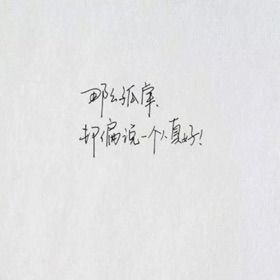 那么孤单，
却偏说一个人真好！